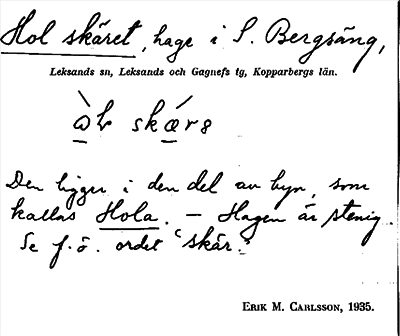 Hol skäret, hage i S. Bergsäng,
Leksands sn, Leksands och Gagnefs tg, Kopparbergs län.
Den ligger i den del av byn, som
kallas Hola. – Hagen är stenig.
Se f.ö. ordet "skär".
ERIK M. CARLSSON, 1935.